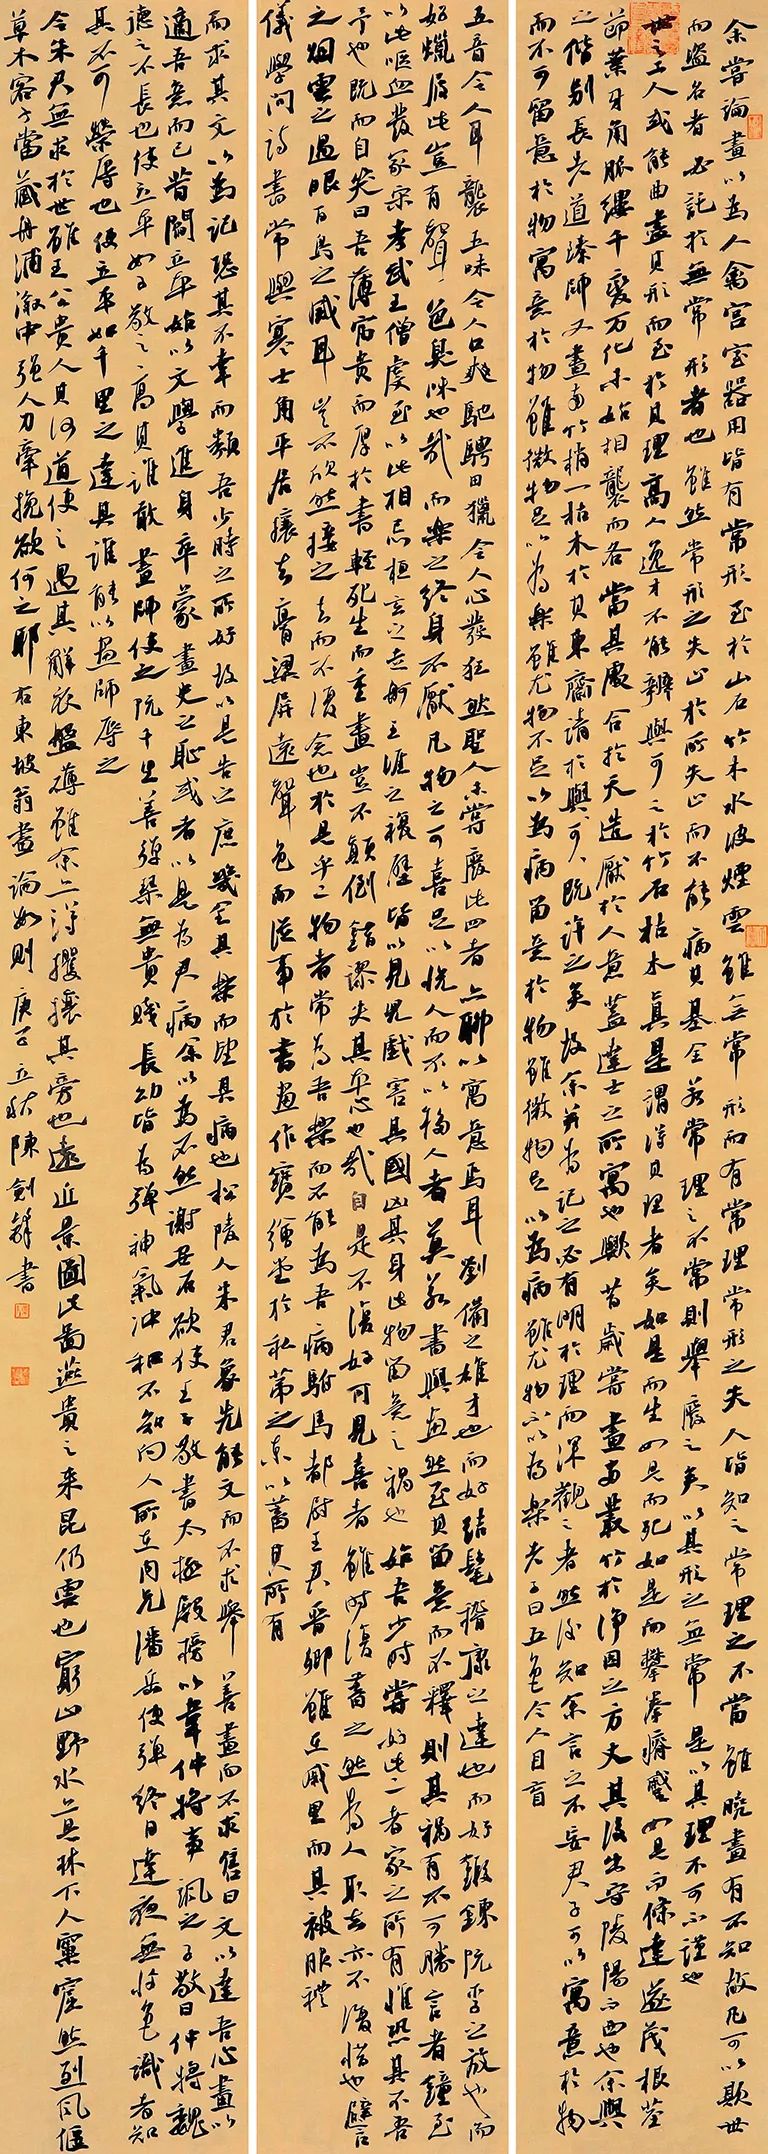 余嘗論畫以為人禽宮室器用皆有常形至於山石竹木水波煙雲雖無常形而有常理常形之失人皆知之常理之不當雖曉畫有不知故凡可以欺世
而盜名者必託於無常形者也雖然常形之失止於所失止而不能病其全若常理之不常則舉廢之矣以其形之無常是以其理不可不謹也
世之工人或能曲盡其形而至於其理高人逸才不能辨與可之於竹石枯木真是謂得其理者矣如是而生如是而死如是而攣拳瘠蹙如是而條達遂茂根莖
節葉牙角脈縷千變万化未始相襲而各當其處合於天造厭於人意蓋達士之所寓也歟昔歲嘗畫兩叢竹於淨因之方丈其後出守陵陽而西也余與
之偕別長老道臻師又畫兩竹梢一枯木於其東齋請於與可可既許之矣故余并為記之必有明於理而深觀之者然後知余言之不妄君子可以寓意於物
而不可留意於物寓意於物雖微物足以為樂雖尤物不足以為病留意於物雖微物足以為病雖尤物不以為樂老子曰五色令人目盲
五音令人耳聾五味令人口爽馳騁田獵令人心發狂然聖人未嘗廢此四者亦聊以寓意焉耳劉備之雄才也而好結髦嵇康之達也而好鍛鍊阮孚之放也而
好蠟屐此豈有聲色臭味也哉而樂之終身不厭凡物之可喜足以悅人而不以移人者莫若書與畫然至其留意而不釋則其禍有不可勝言者鍾至
以此嘔血發冢宋孝武王僧虔至以此相忌桓玄之走舸王涯之複壁皆以兒戲害其國凶其身此物留意之禍也始吾少時嘗好此二者家之所有惟恐其不吾
予也既而自笑曰吾薄富貴而厚於書輕死生而重畫豈不顛倒錯謬失其本心也哉自是不復好可見喜者雖時復蓄之然為人取去亦不復惜也譬
之烟雲之過眼百鳥之感耳豈不欣然接之去而不復念也於是乎二物者常為吾樂而不能為吾病駙馬都尉王君晉卿雖在戚里而其被服禮
儀學問詩書常與寒士角平居攘去膏粱屏遠聲色而從事於書畫作寶繪堂於私第之東以蓄其所有
而求其文以為記恐其不幸而類吾少時之所好故以是告之庶幾全其樂而遠其病也松陵人朱君象先能文而不求舉善畫而不求售曰文以達吾心畫以
適吾意而已昔閻立本始以文學進身卒蒙畫史之恥或者以是為君病余以為不然謝安石欲使王子敬書太極殿榜以韋仲將事諷之子敬曰仲將魏
德之不長也使立本如子敬之高其誰敢畫師使之阮千里善彈琴無貴賤長幼皆為彈神氣沖和不知向人所在內兄潘岳使彈終日達夜無忤色識者知
其不可榮辱也使立本如千里之達其誰能以畫師辱之
今朱君無求於世雖王公貴人其何道使之遇其解衣盤礴雖余亦得攫攘其旁也遠近景圖此圖燕貴之來昆仍雲也窮山野水亦是林下人窠窟然烈風偃
草木客子當藏舟浦漵中強人力牽挽欲何之耶右東坡翁畫論如則庚子立秋陳劍書